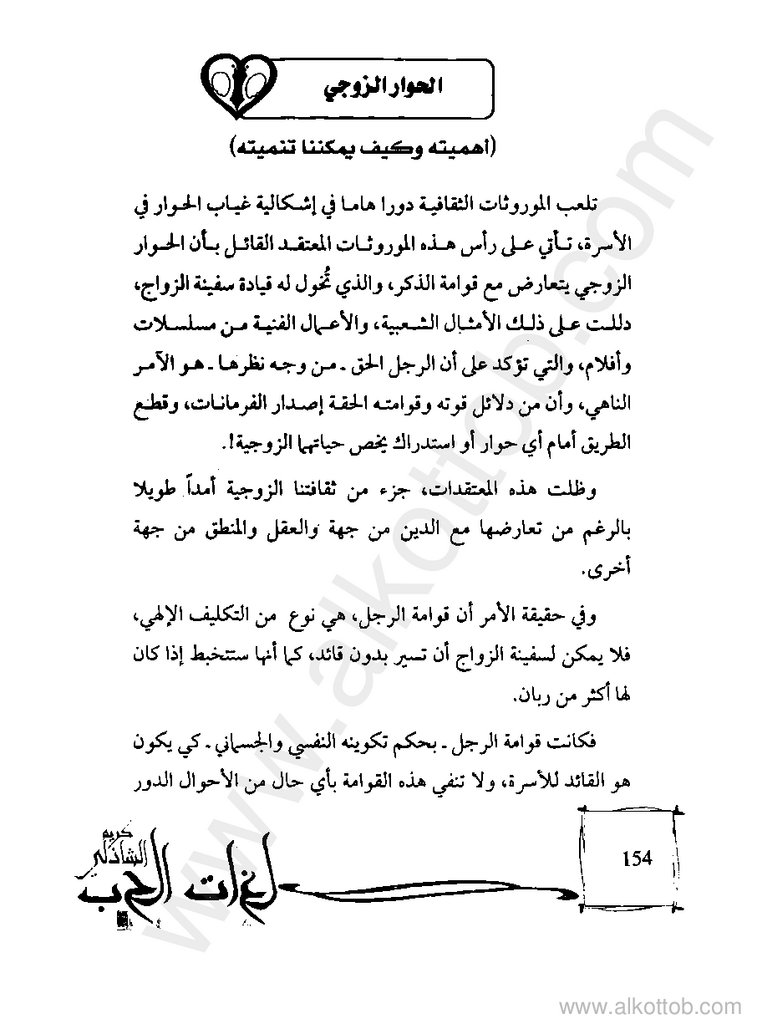 الحوار الزوجي
(أهميته وكيف يمكننا تنميته)
تلعب الموروثات الثقافية دورا هاما في إشكالية غياب الحوار في
الأسرة، تأتي على رأس هذه الموروثات المعتقد القائل بأن الحوار
الزوجي يتعارض مع قوامة الذكر، والذي تُخول له قيادة سفينة الزواج،
دللت على ذلك الأمثال الشعبية، والأعمال الفنية من مسلسلات
وأفلام، والتي تؤكد على أن الرجل الحق ـ من وجه نظرها ـ هو الآمر
الناهي، وأن من دلائل قوته وقوامته الحقة إصدار الفرمانات، وقطع
الطريق أمام أي حوار أو استدراك يخص حياتهما الزوجية!.
وظلت هذه المعتقدات، جزء من ثقافتنا الزوجية أمداً طويلا
بالرغم من تعارضها مع الدين من جهة والعقل والمنطق من جهة
أخرى.
وفي حقيقة الأمر أن قوامة الرجل، هي نوع من التكليف الإلهي،
فلا يمكن لسفينة الزواج أن تسير بدون قائد، كما أنها ستتخبط إذا كان
لها أكثر من ربان.
فكانت قوامة الرجل ـ بحكم تكوينه النفسي والجسماني ـ كي يكون
هو القائد للأسرة، ولا تنفي هذه القوامة بأي حال من الأحوال الدور
154
كريم
الشاذلي
لغات الحب
www.alkottob.com
www.alkottob.com